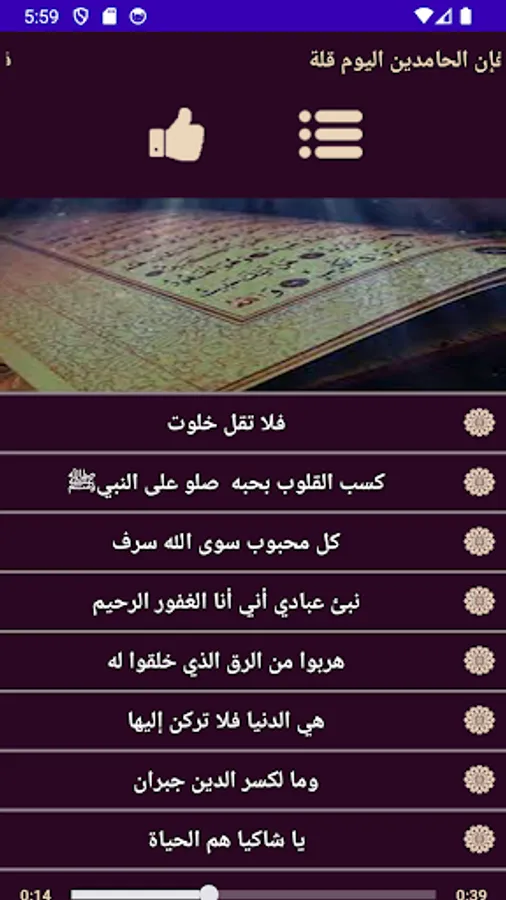 5:59
فإن الحامدين اليوم قلة
فلا تقل خلوت
كسب القلوب بحبه صلو على النبيﷺ
كل محبوب سوى الله سرف
نبئ عبادي أني أنا الغفور الرحيم
هربوا من الرق الذي خلقوا له
هي الدنيا فلا تركن إليها
وما لكسر الدين جبران
يا شاكيا هم الحياة
0:14
0:39